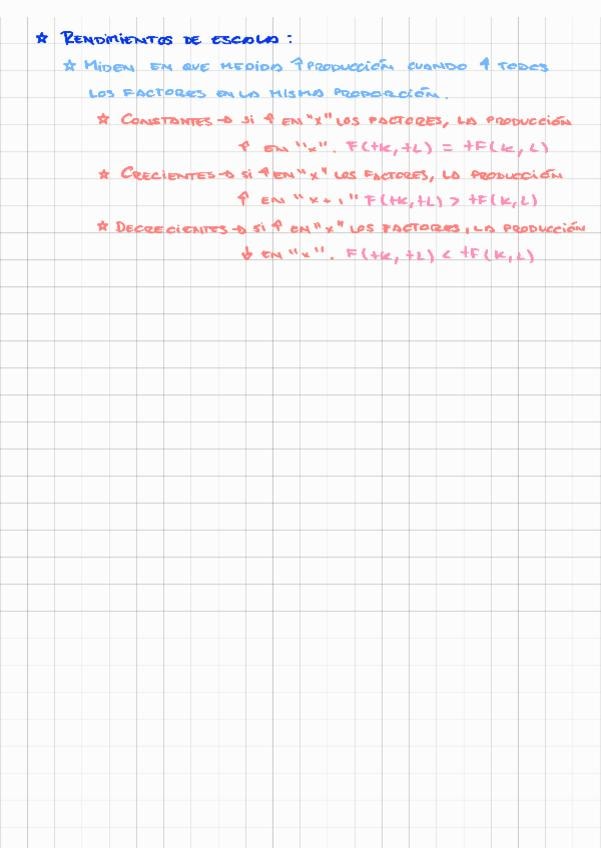 ☆ RENDIMIENTOS DE ESCALA:
☆ MIDEN EN QUE MEDIDA ↑ PRODUCCIÓN CUANDO ↑ TODOS
LOS FACTORES EN LA MISMA PROPORCIÓN.
☆ CONSTANTES → SI ↑ EN "x" LOS FACTORES, LA PRODUCCIÓN
↑ EN "x". F(tK, tL) = tF(K, L)
☆ CRECIENTES → SI ↑ EN "x" LOS FACTORES, LA PRODUCCIÓN
↑ EN "x+1" F(tK, tL) > tF(K, L)
☆ DECRECIENTES → SI ↑ EN "x" LOS FACTORES, LA PRODUCCIÓN
↓ EN "x". F(tK, tL) < tF(K, L)